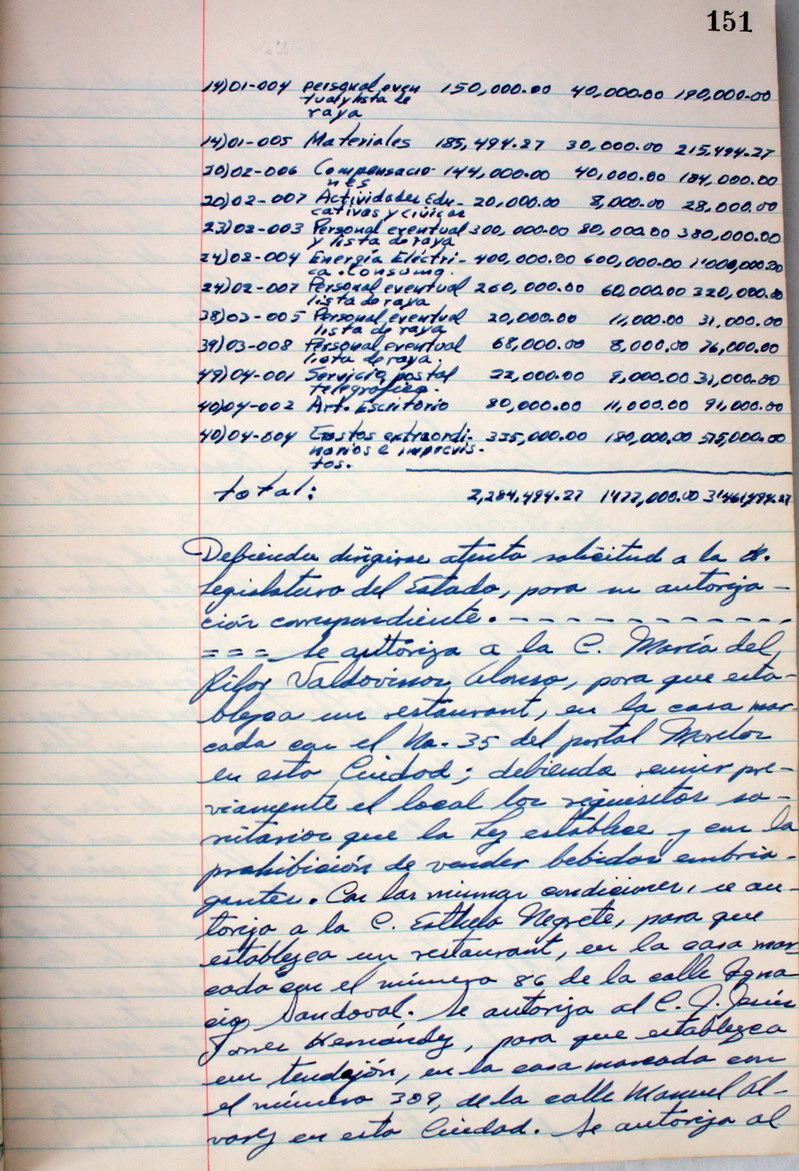 151
14)01-004 personal even 150,000.00 40,000.00 190,000.00
tual y lista de
raya
14)01-005 Materiales 185,494.27 30,000.00 215,494.27
20)02-006 Compensacio- 144,000.00 40,000.00 184,000.00
nes
20)02-007 Actividades Edu- 20,000.00 8,000.00 28,000.00
cativas y cívicas
23)02-003 Personal eventual 300,000.00 80,000.00 380,000.00
y lista de raya
24)02-004 Energía Eléctri- 400,000.00 600,000.00 1'000,000.00
ca. Consumo.
24)02-007 Personal eventual 260,000.00 60,000.00 320,000.00
lista de raya
38)03-005 Personal eventual 20,000.00 11,000.00 31,000.00
lista de raya
39)03-008 Personal eventual 68,000.00 8,000.00 76,000.00
lista de raya.
49)04-001 Servicio postal 22,000.00 9,000.00 31,000.00
telegráfico.
40)04-002 Art. Escritorio 80,000.00 11,000.00 91,000.00
40)04-004 Gastos extraordi- 335,000.00 180,000.00 515,000.00
narios e imprevis-
tos.
total: 2,284,494.27 1477,000.00 3'461,494.27
Debiendo dirigirse atenta solicitud a la H.
Legislatura del Estado, para su autoriza-
ción correspondiente. - - - - - - - - - - - -
= = = Se auttoriza a la C. María del
Pilar Valdovinos Alonso, para que esta-
blezca un restaurant, en la casa mar-
cada con el No. 35 del portal Morelos
en esta Ciudad; debiendo reunir pre-
viamente el local los requisitos sa-
nitarios que la Ley establece y con la
prohibición de vender bebidas embria-
gantes. Con las mismas condiciones, se au-
toriza a la C. Esthela Negrete, para que
establezca un restaurant, en la casa mar
cada con el número 86 de la calle Igna
cio Sandoval. Se autoriza al C. J. Jesús
Torres Hernández, para que establezca
un tendajón, en la casa marcada con
el número 309, de la calle Manuel Al-
varez en esta Ciudad. Se autoriza al